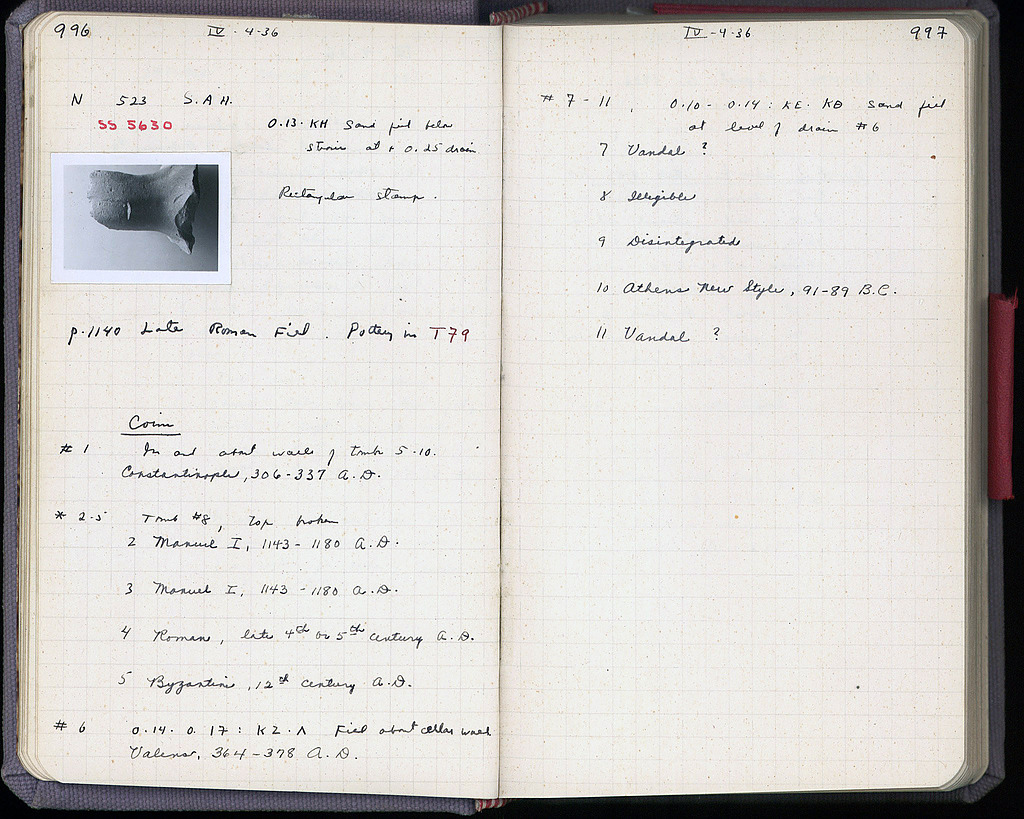 996
IV - 4-36
N 523 S.A H.
SS 5630
0.13. KH Sand fill below
strosis at + 0.25 drain
Rectangular stamp.
p. 1140 Late Roman Fill. Pottery in T79
Coins
# 1 In and about walls of tombs 5-10.
Constantinople, 306-337 A.D.
* 2-5 Tomb #8, top broken
2 Manuel I, 1143-1180 A.D.
3 Manuel I, 1143-1180 A.D.
4 Roman, late 4th or 5th century A.D.
5 Byzantine, 12th century A.D.
# 6 0.14. 0.17: KZ. Λ Fill about cellar wall
Valens, 364-378 A.D.
IV - 4-36
997
# 7-11, 0.10-0.14: KE. KΘ Sand fill
at level of drain #6
7 Vandal ?
8 Illegible
9 Disintegrated
10 Athens New Style, 91-89 B.C.
11 Vandal ?